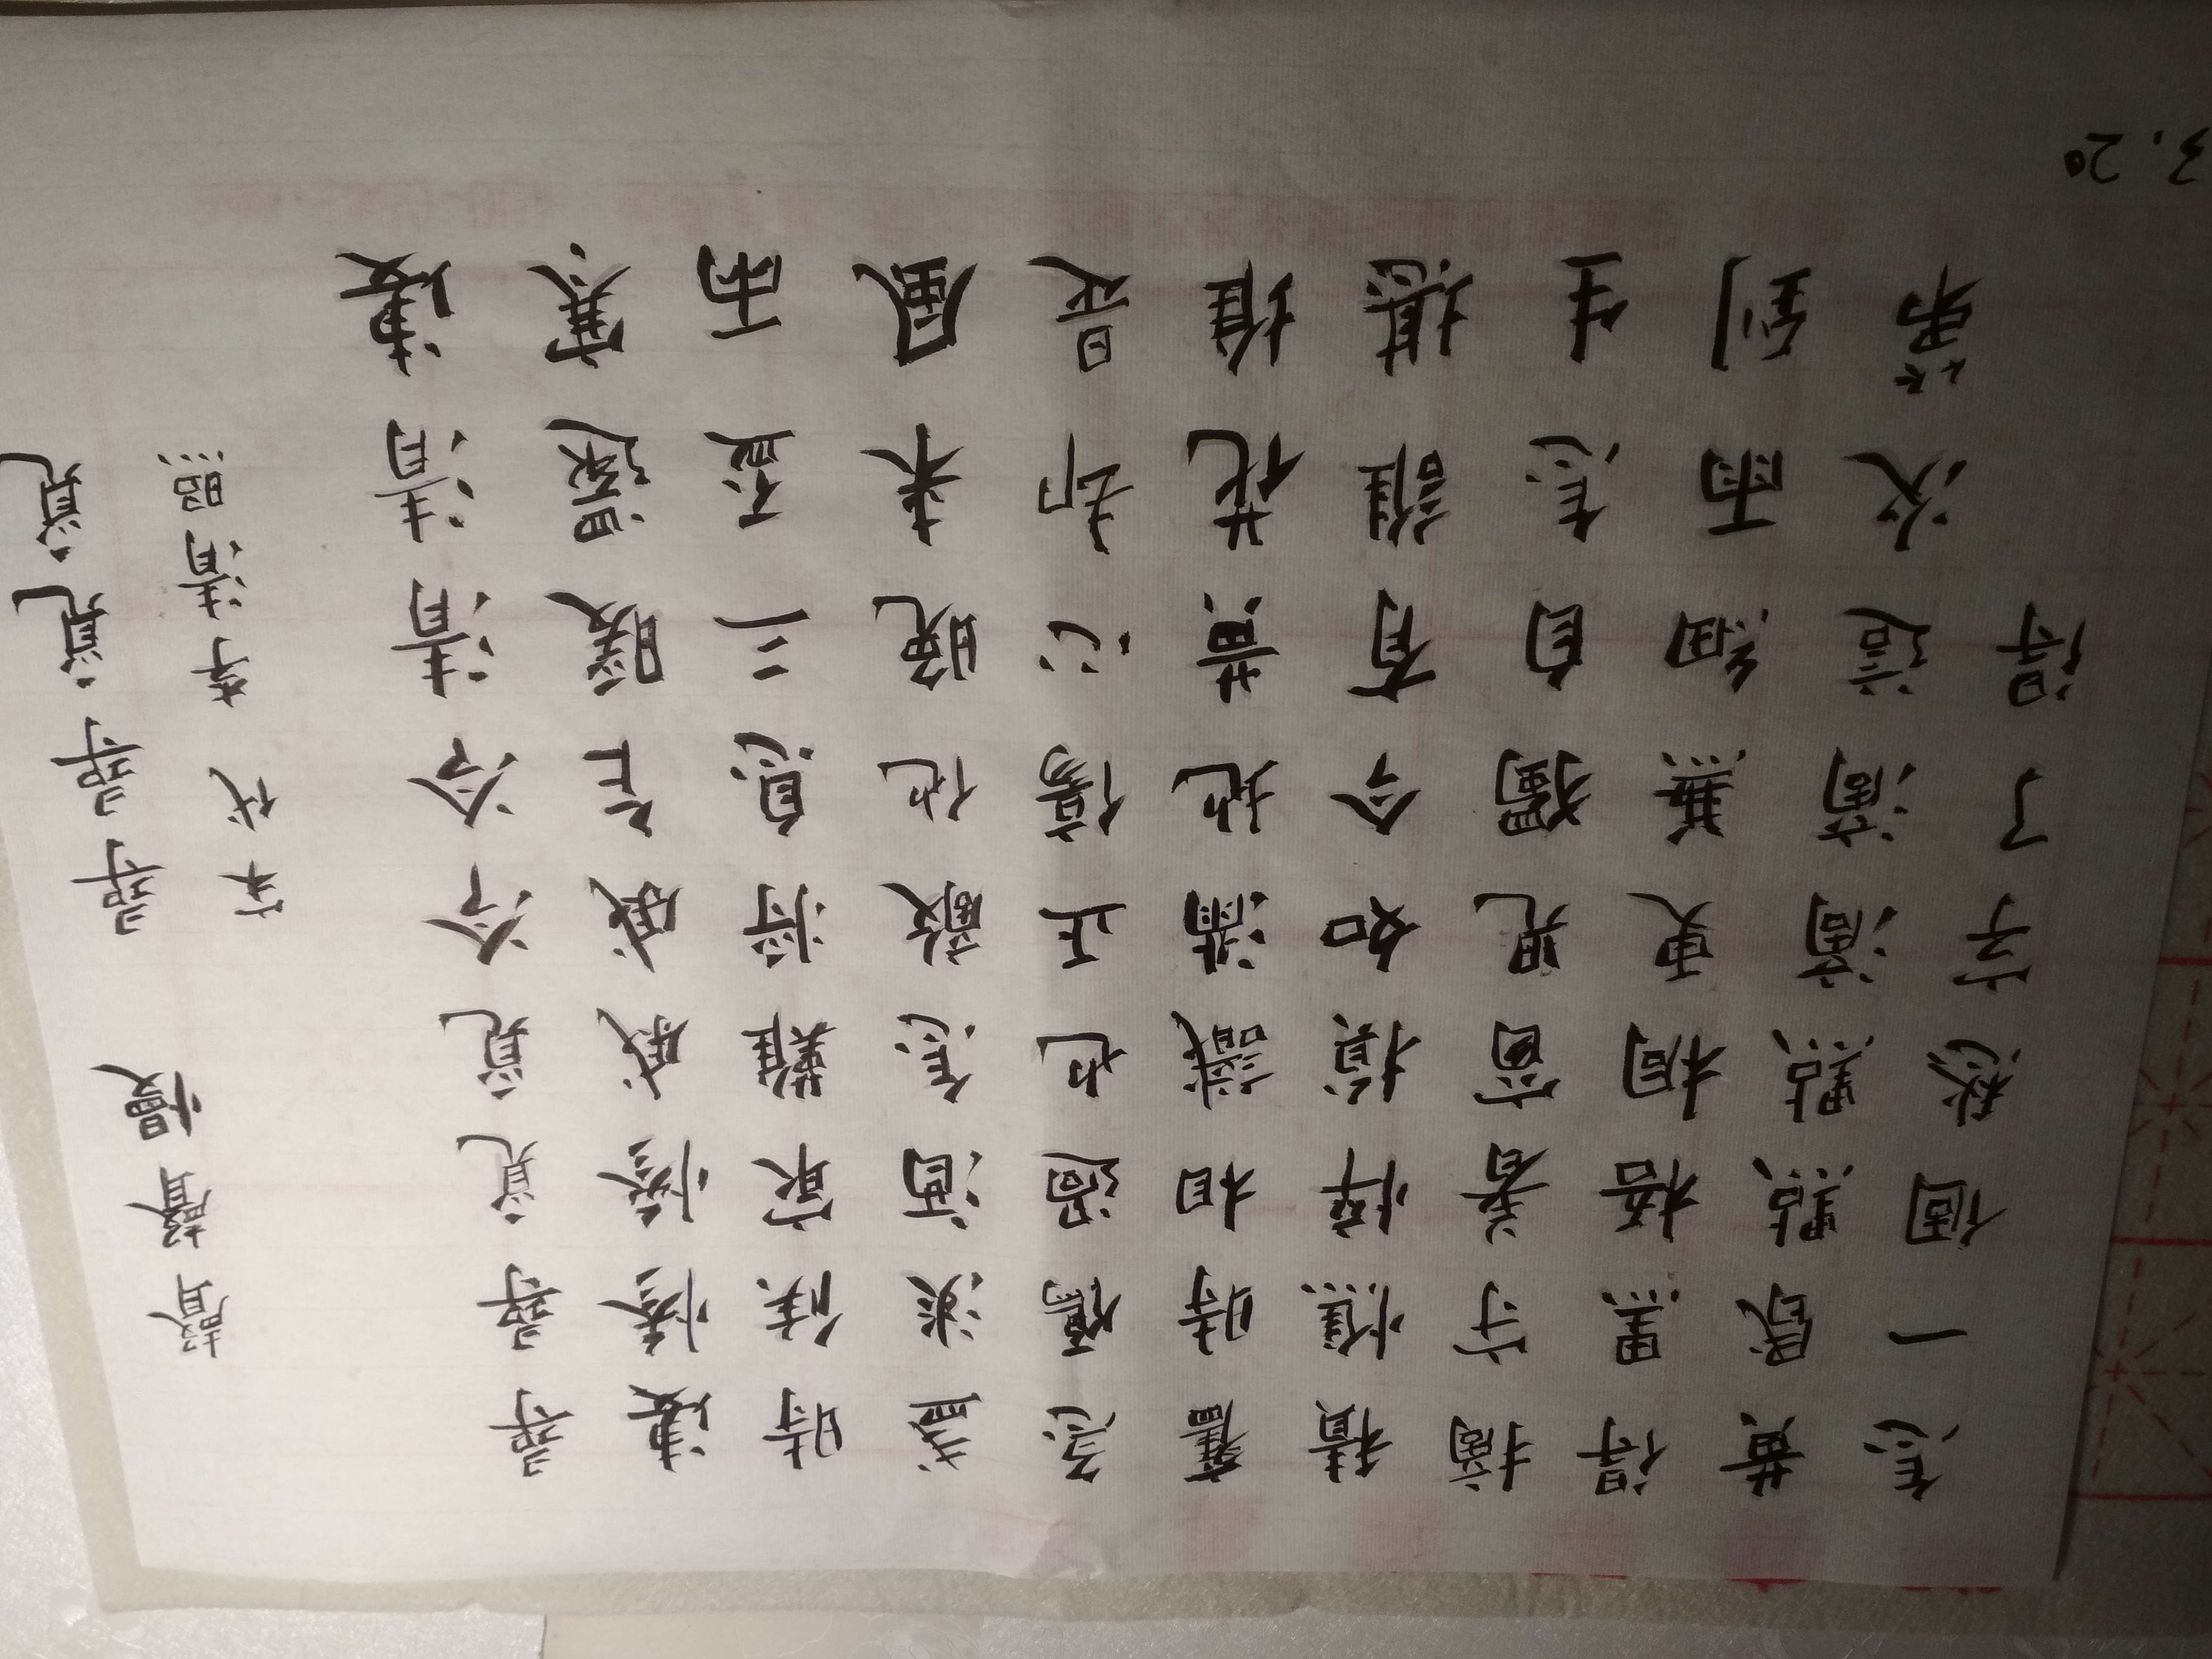 聲聲慢 尋尋覓覓
宋代 李清照
尋尋覓覓冷冷清清淒
淒慘慘戚戚乍暖還寒
時候最難將息三盃兩
盞淡酒怎敵他晚來風
急鴈過也正傷心却是
舊時相識滿地黃花堆
積憔悴損如今有誰堪
摘守著窗兒獨自怎生
得黑梧桐更兼細雨到
黃昏點點滴滴這次第
怎一個愁字了得
3.20